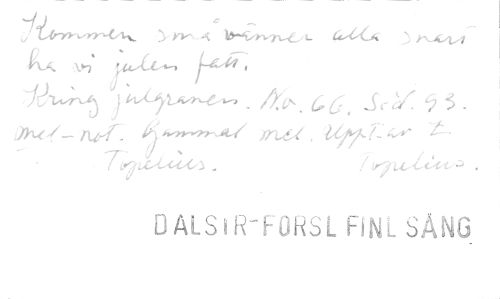 Kommen små vänner alla snart
ha vi julen fatt.
Kring julgranen. No. 66. Sid. 93.
mel-not. Gammal mel. Uppt. av Z
Topelius. Topelius.
DALSIR-FORSL FINL SÅNG